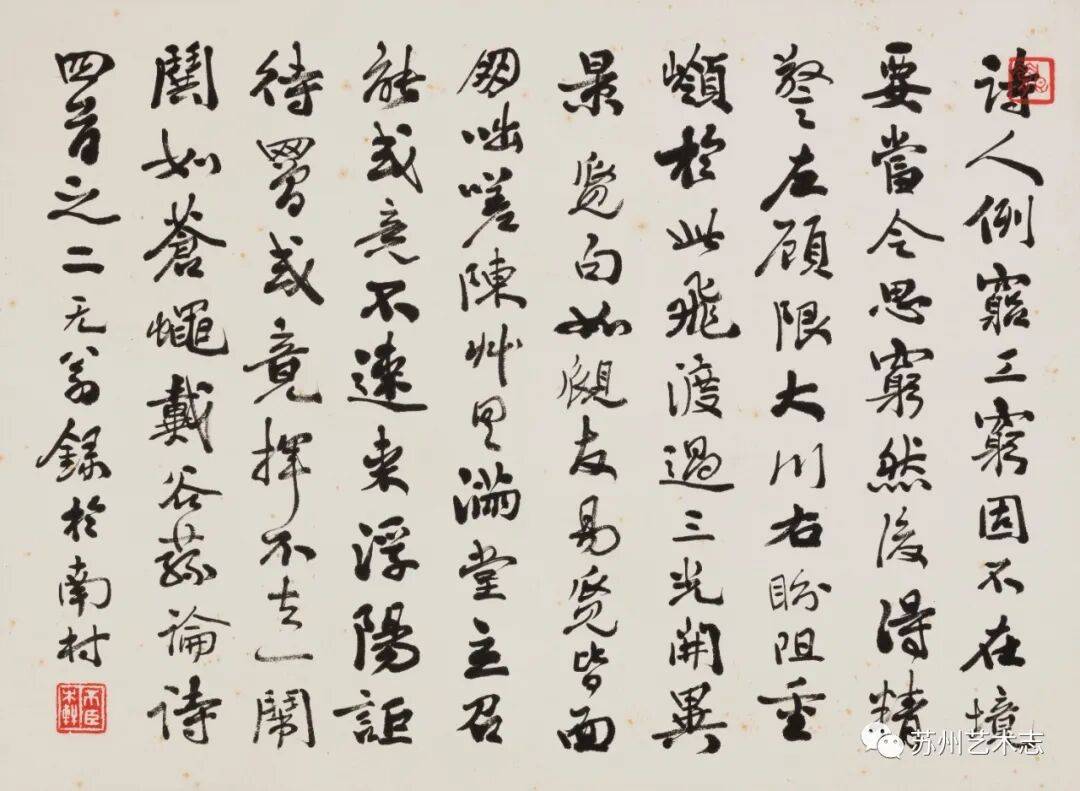 詩人例窮工窮因不在境
要當令思窮然後得精
警左顧限大川右盼阻重
嶺於此飛渡過三光開異
景覓句如友易覓皆面
咄嗟陳艸具滿堂立召
能或意不速來浮陽詎
待罾或竟揮不去一鬧
鬨如蒼蠅戴谷蓀論詩
四首之二无翁錄於南村
苏州艺术志